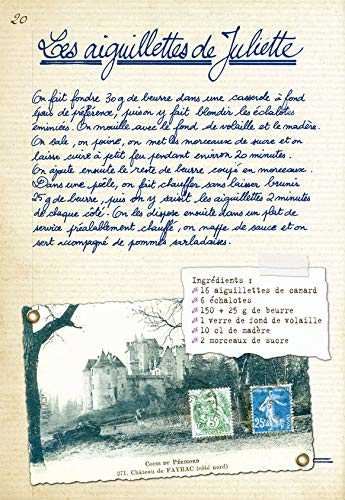 20
Les aiguillettes de Juliette
On fait fondre 30 g de beurre dans une casserole à fond
épais de préférence, puis on y fait blondir les échalotes
émincées. On mouille avec le fond de volaille et le madère.
On sale, on poivre, on met les morceaux de sucre et on
laisse cuire à petit feu pendant environ 20 minutes.
On ajoute ensuite le reste de beurre, coupé en morceaux.
Dans une poêle, on fait chauffer sans laisser brunir
25 g de beurre, puis on y saisit les aiguillettes 2 minutes
de chaque côté. On les dispose ensuite dans un plat de
service préalablement chauffé, on nappe de sauce et on
sert accompagné de pommes sarladaises.
Ingrédients :
16 aiguillettes de canard
6 échalotes
150 + 25 g de beurre
1 verre de fond de volaille
10 cl de madère
2 morceaux de sucre
25
Coins du Périgord
271. Château de FAYRAC (côté nord)